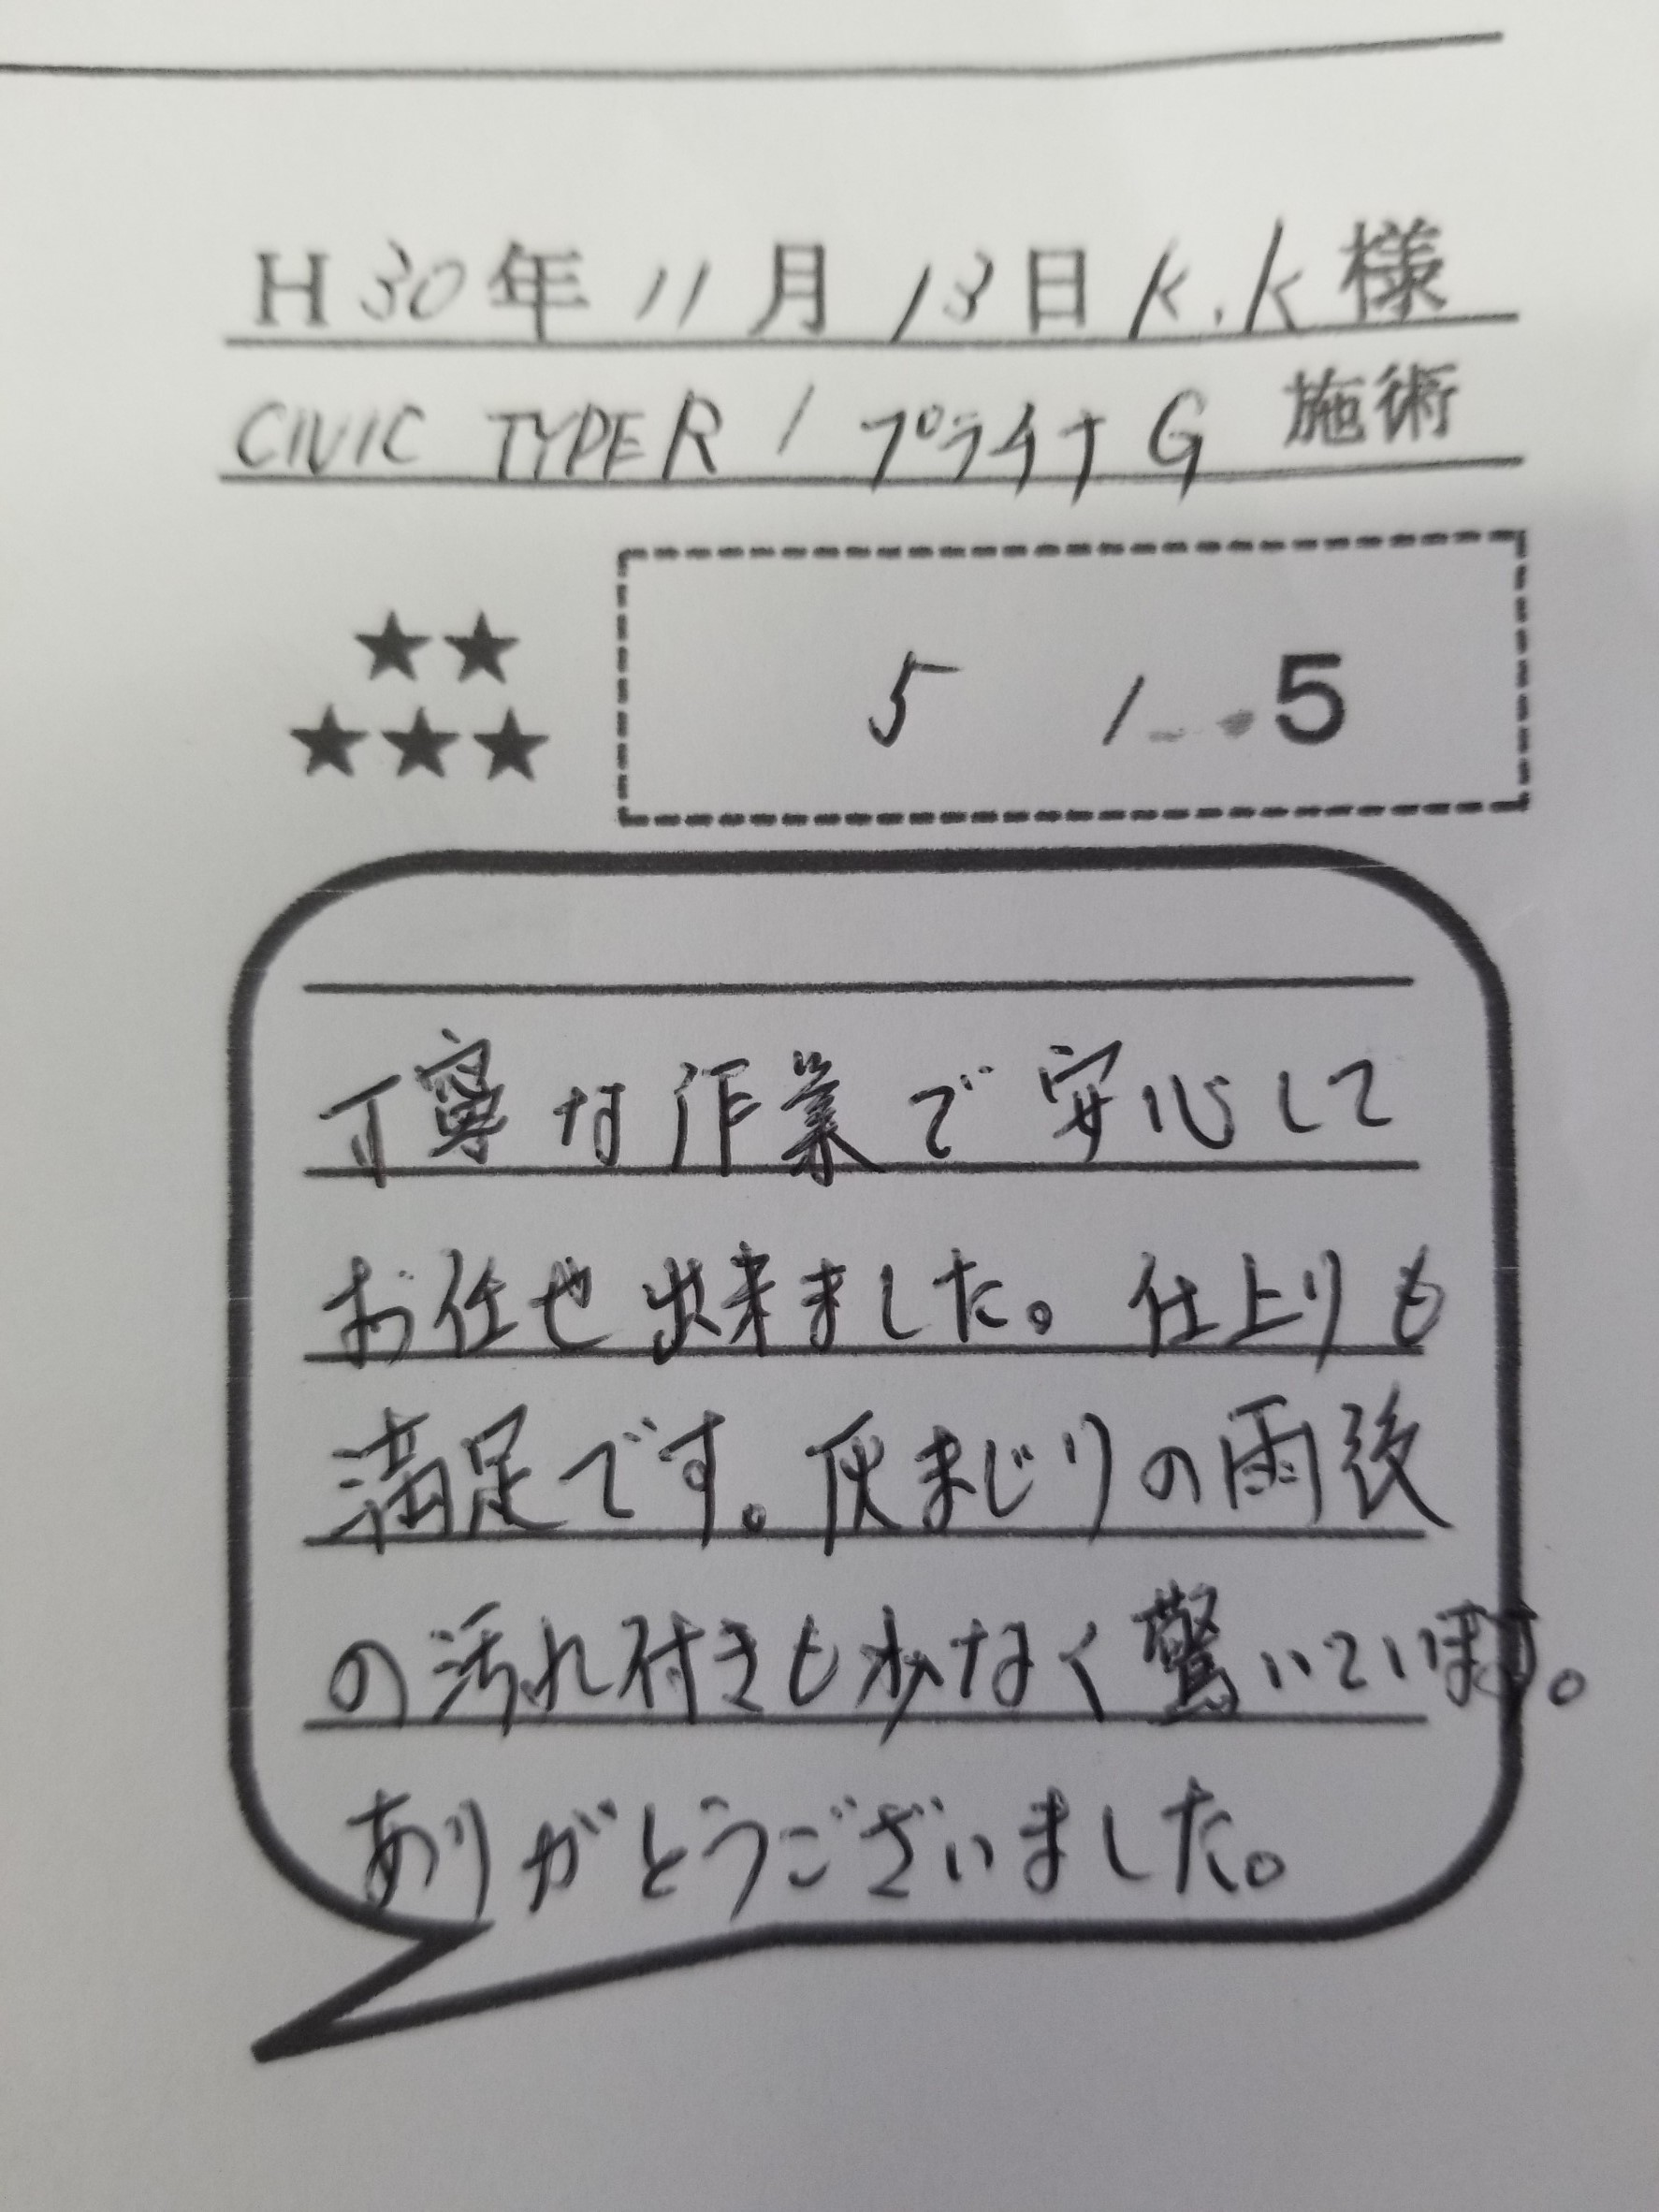 H30年11月13日K.K様
CIVIC TYPE R / プラチナG 施術
★★
★★★
5 / 5
丁寧な作業で安心して
お任せ出来ました。仕上りも
満足です。灰まじりの雨後
の汚れ付きも少なく驚いています。
ありがとうございました。